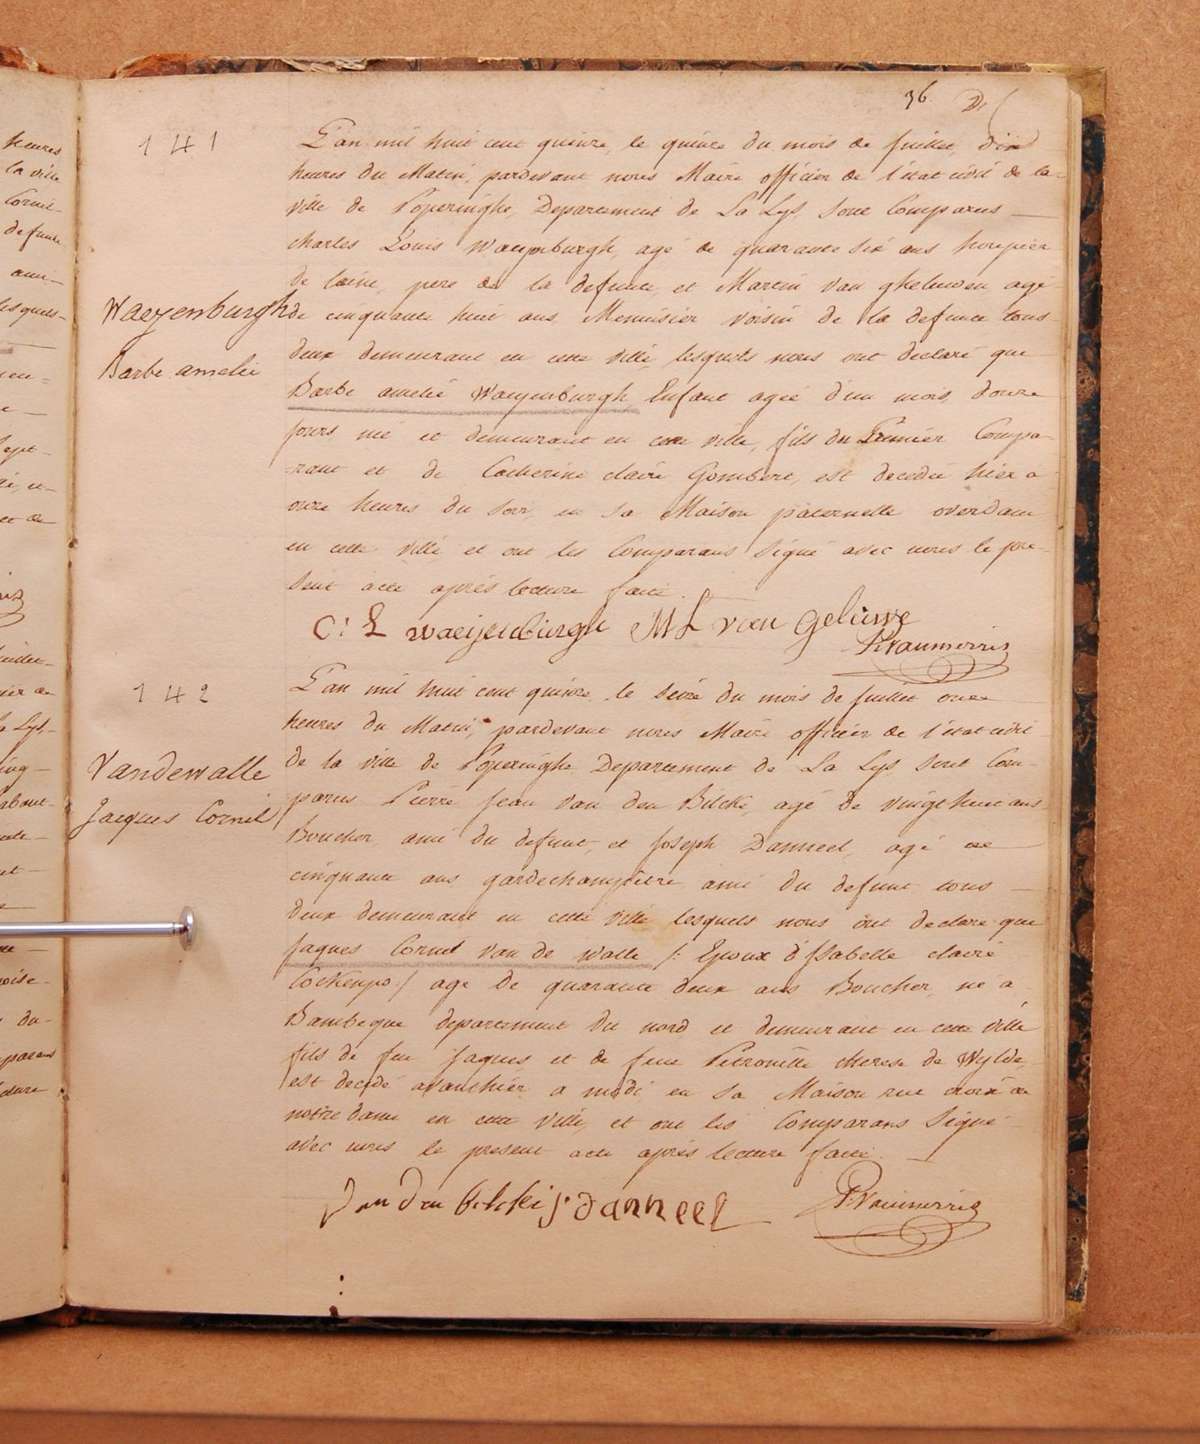 36.
141
L'an mil huit cent quinze, le quinze du mois de juillet, dix
heures du Matin, pardevant nous Maire officier de l'état civil de la
ville de Poperinghe, Departement de La Lys, sont Comparus
charles Louis Waeyenburgh, agé de quarante six ans houpier
de laine, pere de la defunte, et Martin Van gheluwen agé
Waeyenburgh
de cinquante huit ans Menuisier voisin de la defunte tous
Barbe amelie
deux demeurant en cette ville, lesquels nous ont declaré que
Barbe amelie Waeyenburgh Enfant agée d'un mois, douze
jours né et demeurant en cette ville, fils du Premier Compa-
rant et de Catherine claire Gombert, est decedée hier a
onze heures du soir, en sa Maison paternelle overdam
en cette ville et ont les Comparans signé avec nous le pre-
sent acte après lecture faite.
C: L waeyenburgh M L van geluwe
142
L'an mil huit cent quinze le seize du mois de juillet onze
heures du Matin, pardevant nous Maire officier de l'état civil
Vandewalle
de la ville de Poperinghe Departement de La Lys sont Com-
Jacques Cornil
parus Pierre Jean Van den Bilcke, agé de vingt huit ans
Boucher, ami du defunt, et Joseph Danneel, agé de
cinquante ans gardechampêtre ami du defunt tous
deux demeurant en cette ville lesquels nous ont declaré que
Jaques Cornil Van de Walle /: Epoux d'Isabelle claire
Cockenpo :/ agé de quarante deux ans Boucher, né a
Bambeque departement du nord et demeurant en cette ville
fils de feu Jaques et de feue Petronille therese de Wylde,
est decedé avanthier a midi en sa Maison rue croix de
notre dame en cette ville, et ont les Comparans signé
avec nous le present acte après lecture faite.
Van den bilcke J. danneel